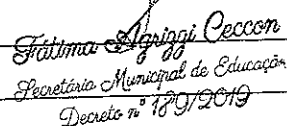 Fátima Agrizzi Ceccon
Secretária Municipal de Educação
Decreto nº 189/2019